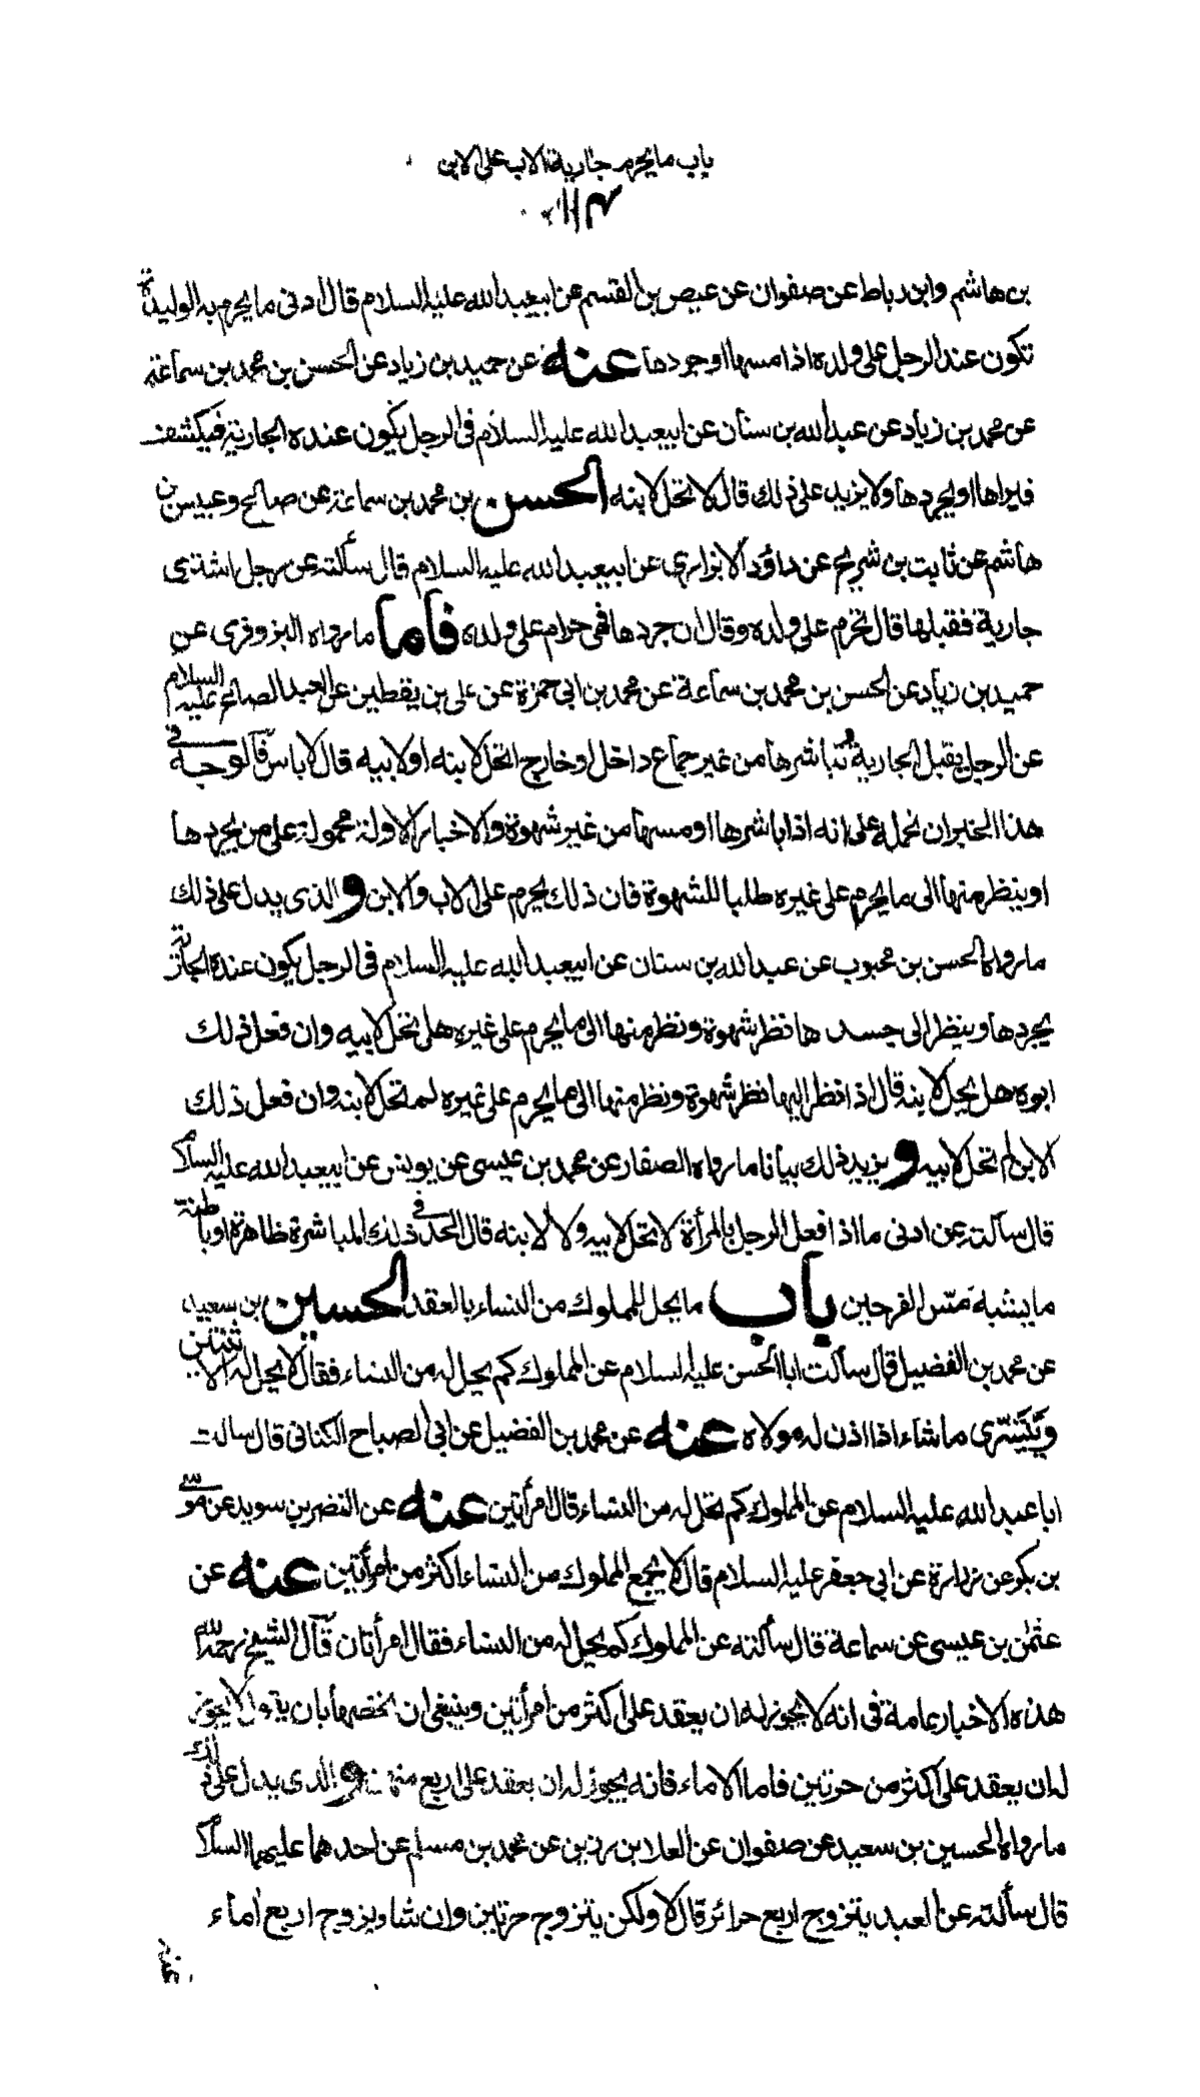 باب ما يحرم جارية الاب على الابن
بن هاشم وابن رباط عن صفوان عن عيص بن القسم عن ابيعبد الله عليه السلام قال ادنى ما يحرم به الوليدة
تكون عند الرجل على ولده اذا مسها او جردها عنه عن حميد بن زياد عن الحسن بن محمد بن سماعة
عن محمد بن زياد عن عبد الله بن سنان عن ابيعبد الله عليه السلام في الرجل يكون عنده الجارية فيكشف
فيراها او يجردها ولا يزيد على ذلك قال لا تحل لابنه الحسن بن محمد بن سماعة عن صالح وعبيس بن
هاشم عن ثابت بن شريح عن داود الابزاري عن ابيعبد الله عليه السلام قال سألته عن رجل اشترى
جارية فقبلها قال تحرم على ولده وقال ان جردها فهي حرام على ولده فاما ما رواه البزوفرى عن
حميد بن زياد عن الحسن بن محمد بن سماعة عن محمد بن ابي حمزة عن علي بن يقطين عن العبد الصالح عليه السلام
عن الرجل يقبل الجارية و يباشرها من غير جماع داخل او خارج اتحل لابنه او لابيه قال لا باس فالوجه في
هذا الخبر ان نحمله على انه اذا باشرها او مسها من غير شهوة والاخبار الاولة محمولة على من يجردها
او ينظر منها الى ما يحرم على غيره طلبا للشهوة فان ذلك يحرم على الاب والابن والذى يدل على ذلك
ما رواه الحسن بن محبوب عن عبد الله بن سنان عن ابيعبد الله عليه السلام في الرجل يكون عنده الجارية
يجردها وينظر الى جسدها نظر شهوة ونظر منها الى ما يحرم على غيره هل تحل لابيه وان فعل ذلك
ابوه هل يحل لابنه قال اذا نظر اليها نظر شهوة ونظر منها الى ما يحرم على غيره لم تحل لابنه وان فعل ذلك
الابن لم تحل لابيه ويزيد ذلك بيانا ما رواه الصفار عن محمد بن عيسى عن يونس عن ابيعبد الله عليه السلام
قال سألته عن ادنى ما اذا فعل الرجل بالمرأة لا تحل لابيه ولا لابنه قال الحد في ذلك المباشرة ظاهرة او باطنة
ما يشبه مس الفرجين باب ما يحل للمملوك من النساء بالعقد الحسين بن سعيد
عن محمد بن الفضيل قال سألت ابا الحسن عليه السلام عن المملوك كم يحل له من النساء فقال لا يحل له الا ثنتين
ويتسرى ما شاء اذا اذن له مولاه عنه عن محمد بن الفضيل عن ابي الصباح الكناني قال سالت
ابا عبد الله عليه السلام عن المملوك كم تحل له من النساء قال امرأتين عنه عن النضر بن سويد عن موسى
بن بكر عن زرارة عن ابي جعفر عليه السلام قال لا يجمع المملوك من النساء اكثر من امرأتين عنه عن
عثمن بن عيسى عن سماعة قال سألته عن المملوك كم يحل له من النساء فقال امرأتان قال الشيخ رحمه الله
هذه الاخبار عامة في انه لا يجوز له ان يعقد على اكثر من امرأتين وينبغى ان نخصها بان يقول لا يجوز
له ان يعقد على اكثر من حرتين فاما الاماء فانه يجوز له ان يعقد على اربع منهن والذى يدل على ذلك
ما رواه الحسين بن سعيد عن صفوان عن العلا بن رزين عن محمد بن مسلم عن احدهما عليهما السلام
قال سألته عن العبد يتزوج اربع حرائر قال لا ولكن يتزوج حرتين وان شاء يزوج اربع اماء